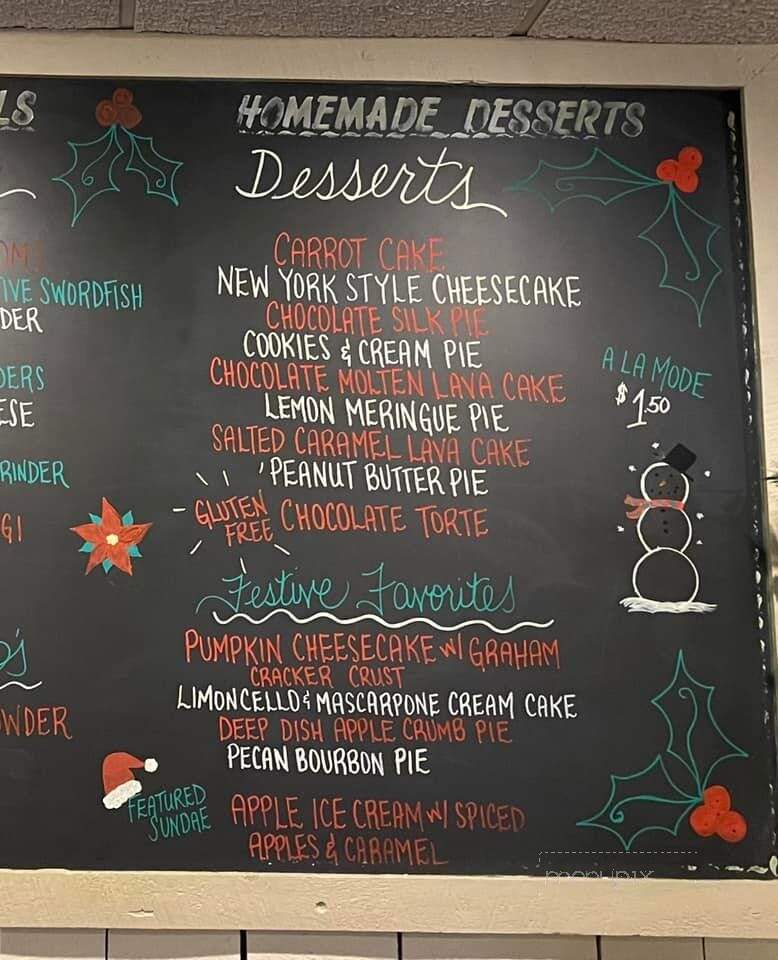 LS
HOMEMADE DESSERTS
Desserts
CARROT CAKE
NEW YORK STYLE CHEESECAKE
CHOCOLATE SILK PIE
COOKIES & CREAM PIE
CHOCOLATE MOLTEN LAVA CAKE
LEMON MERINGUE PIE
SALTED CARAMEL LAVA CAKE
PEANUT BUTTER PIE
GLUTEN FREE CHOCOLATE TORTE
A LA MODE
$1.50
Festive Favorites
PUMPKIN CHEESECAKE W/ GRAHAM
CRACKER CRUST
LIMONCELLO & MASCARPONE CREAM CAKE
DEEP DISH APPLE CRUMB PIE
PECAN BOURBON PIE
FEATURED
SUNDAE
APPLE ICE CREAM W/ SPICED
APPLES & CARAMEL
IVE SWORDFISH
DER
DERS
ESE
RINDER
GI
O's
OWDER
menupix